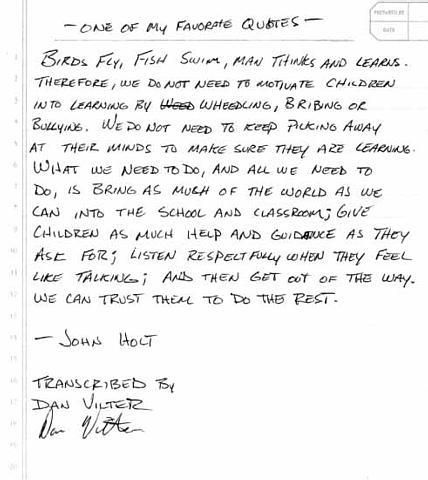 — ONE OF MY FAVORATE QUOTES —
PREPARED BY
DATE
BIRDS FLY, FISH SWIM, MAN THINKS AND LEARNS.
THEREFORE, WE DO NOT NEED TO MOTIVATE CHILDREN
INTO LEARNING BY WHEEDLING, BRIBING OR
BULLYING. WE DO NOT NEED TO KEEP PICKING AWAY
AT THEIR MINDS TO MAKE SURE THEY ARE LEARNING.
WHAT WE NEED TO DO, AND ALL WE NEED TO
DO, IS BRING AS MUCH OF THE WORLD AS WE
CAN INTO THE SCHOOL AND CLASSROOM; GIVE
CHILDREN AS MUCH HELP AND GUIDANCE AS THEY
ASK FOR; LISTEN RESPECTFULLY WHEN THEY FEEL
LIKE TALKING; AND THEN GET OUT OF THE WAY.
WE CAN TRUST THEM TO DO THE REST.
— JOHN HOLT
TRANSCRIBED BY
DAN VILTER
Dan Vilter